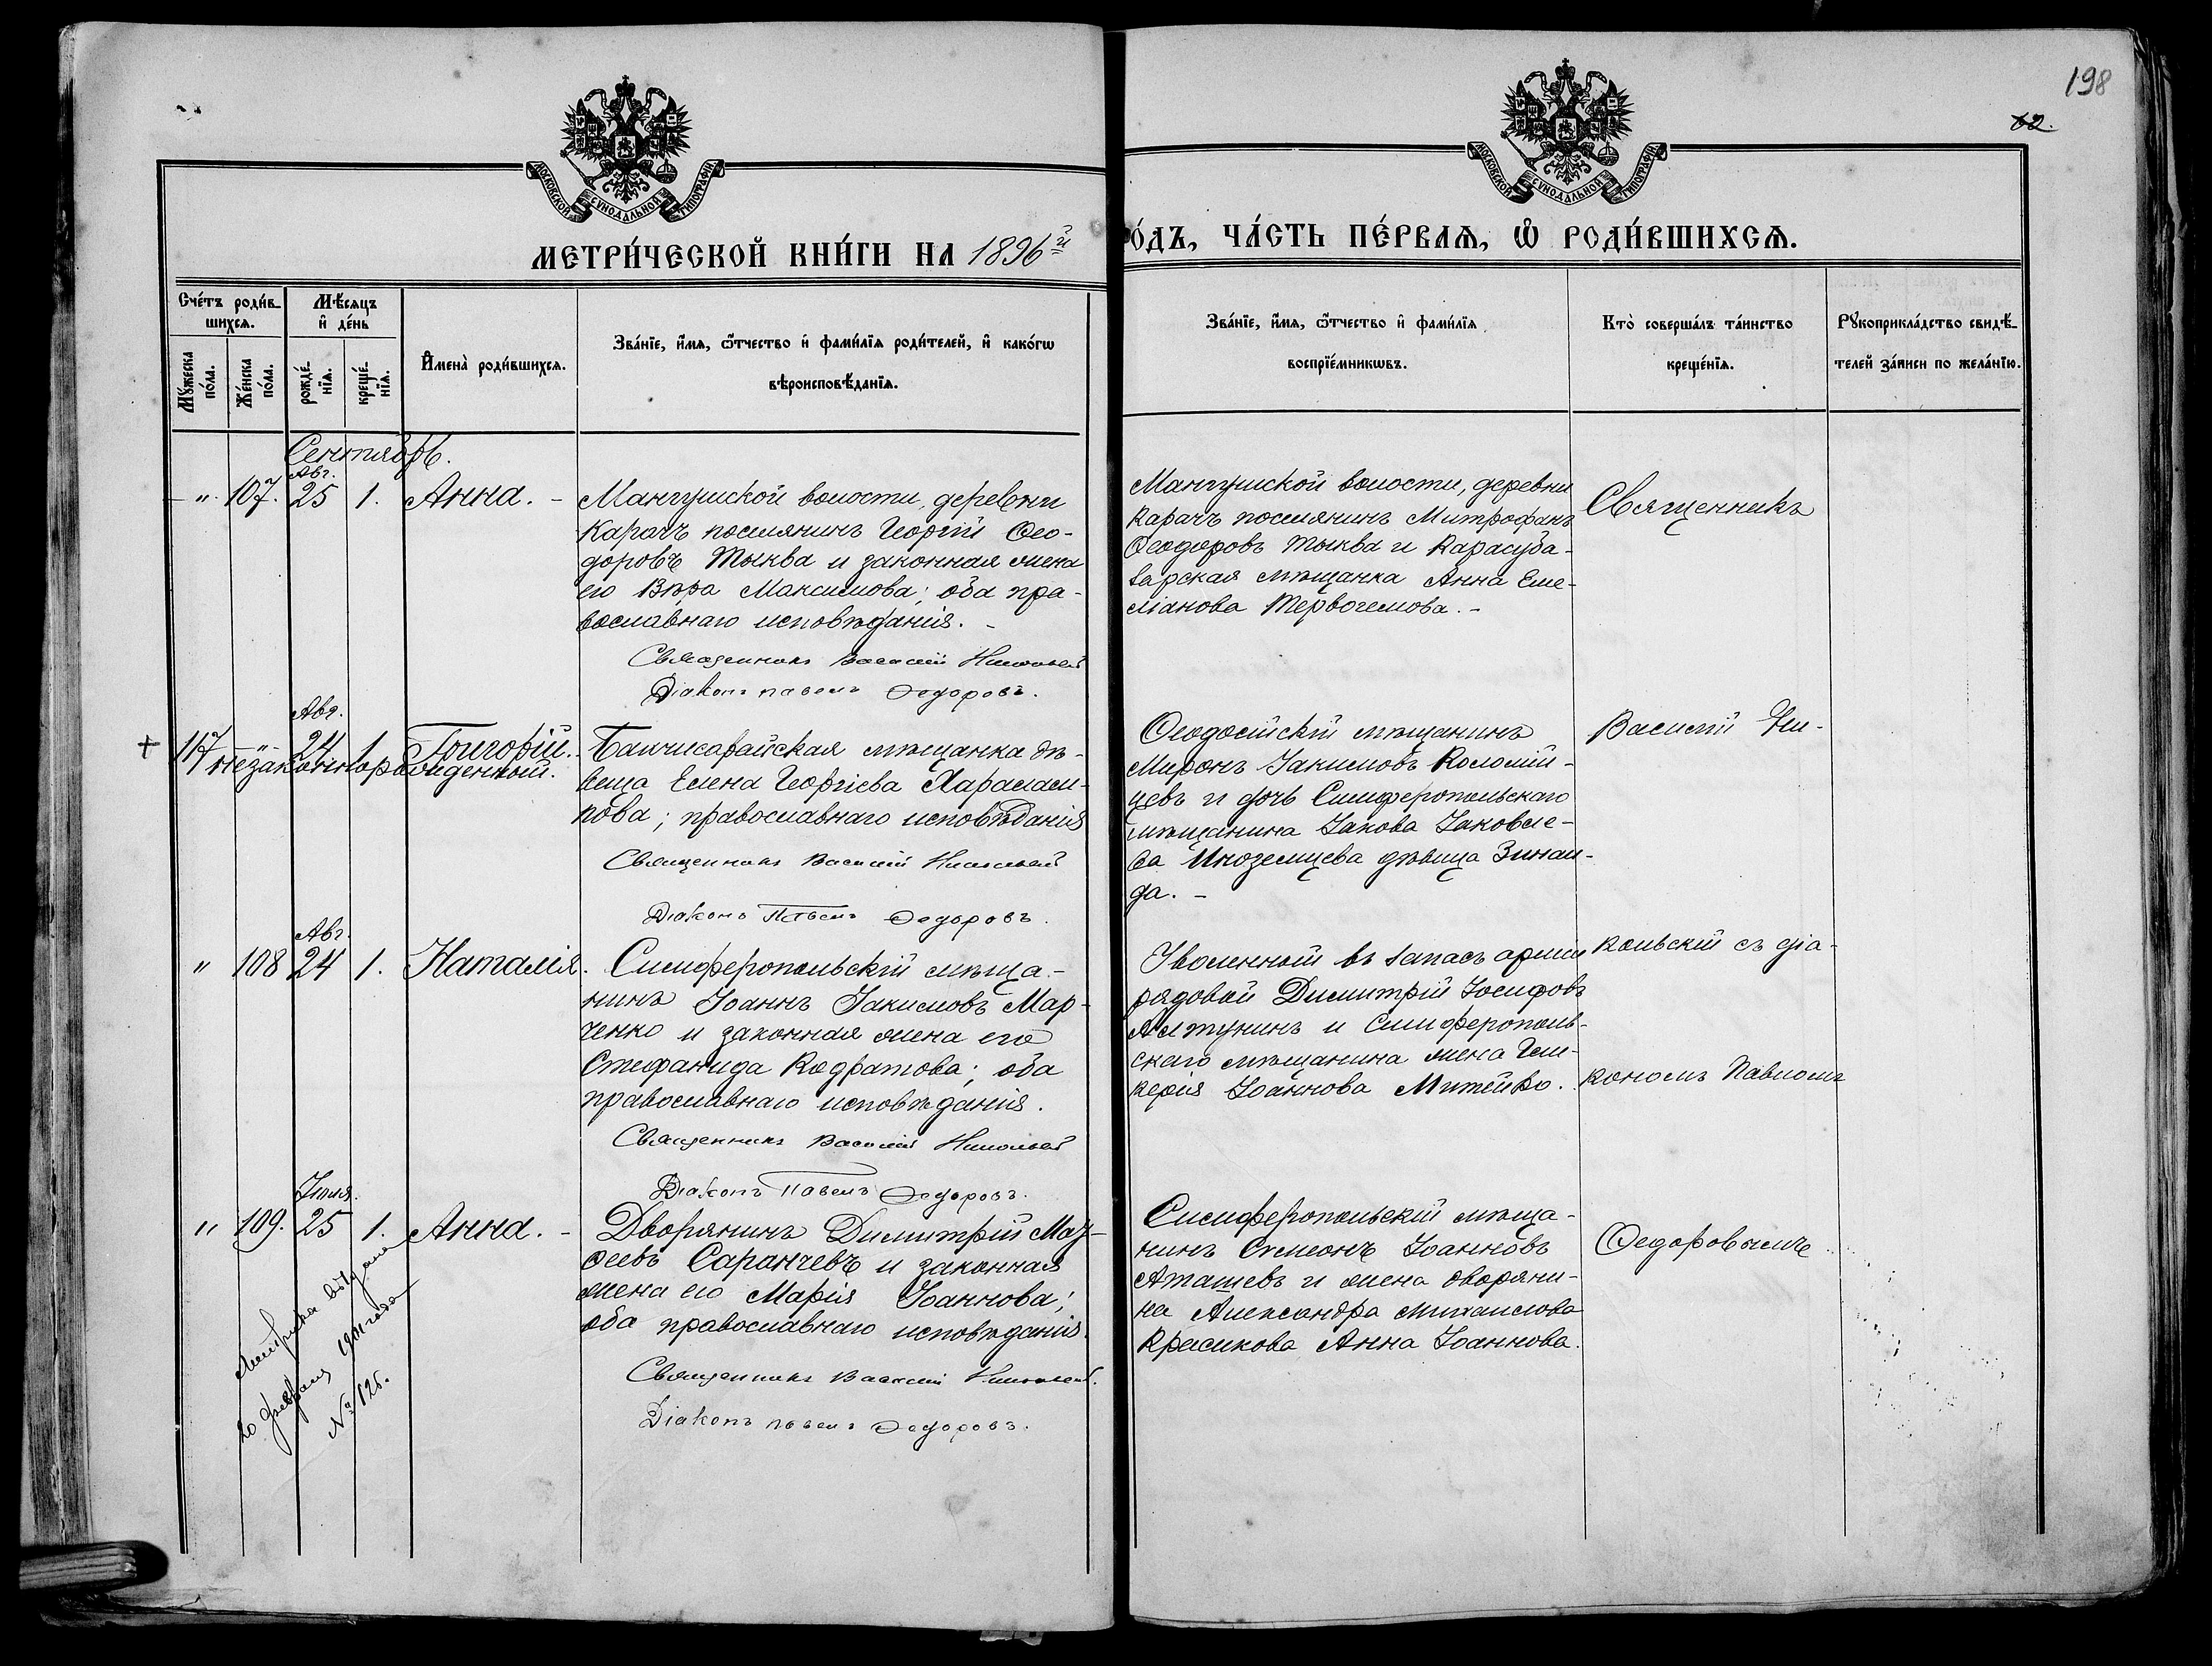 198
62.
МОСКОВСКОЙ СѴНОДАЛЬНОЙ ТИПОГРАФІИ
МОСКОВСКОЙ СѴНОДАЛЬНОЙ ТИПОГРАФІИ
МЕТРИ́ЧЕСКОЙ КНИ́ГИ НА 1896й
РО́ДЪ, ЧА́СТЬ ПЕ́РВАЯ, Ѡ РОДИ́ВШИХСЯ.
Сче́тъ роди́в-
шихся.
Мꙋжеска по́ла.
Же́нска по́ла.
Мѣ́сяцъ
и де́нь
рожде́нїя.
креще́нїя.
И҆мена̀ роди́вшихся.
Зва́нїе, и҆́мя, ѻ҆́тчество и҆ фами́лїя роди́телей, и҆ како́гѡ
вѣроисповѣ́данїя.
Зва́нїе, и҆́мя, ѻ҆́тчество и҆ фами́лїя
воспрїе́мникѡвъ.
Кто̀ соверша́лъ та́инство
креще́нїя.
Рꙋкоприкла́дство свидѣ́-
телей за́писи по жела́нїю.
Сентябрь.
Авг.
" 107. 25 1. Анна. -
Мангушской волости, деревни
Карачъ поселянинъ Георгій Ѳео-
доровъ Тыква и законная жена
его Вѣра Максимова; оба пра-
вославнаго исповѣданія. -
Священникъ Василій Никольскій
Діаконъ Павелъ Ѳедоровъ.
Мангушской волости, деревни
Карачъ поселянинъ Митрофанъ
Ѳеодоровъ Тыква и Карасуба-
зарская мѣщанка Анна Еме-
ліанова Тервочемова. -
Священникъ
Авг.
+ 117 " 24 1. Григорій.
незаконнорожденный.
Бахчисарайская мѣщанка дѣ-
вица Елена Георгіева Харалам-
пова; православнаго исповѣданія
Священникъ Василій Никольскій
Діаконъ Павелъ Ѳедоровъ.
Ѳеодосійскій мѣщанинъ
Миронъ Іакимовъ Коломій-
цевъ и дочь Симферопольскаго
мѣщанина Іакова Іаковле-
ва Иноземцева дѣвица Зинаи-
да. -
Василій Ни-
Авг.
" 108 24 1. Наталія.
Симферопольскій мѣща-
нинъ Іоаннъ Іакимовъ Мар-
ченко и законная жена его
Стефанида Кодратова; оба
православнаго исповѣданія.
Священникъ Василій Никольскій
Діаконъ Павелъ Ѳедоровъ.
Уволенный въ запасъ арміи
рядовой Димитрій Іосифовъ
Алтунинъ и Симферополь-
скаго мѣщанина жена Гли-
керія Іоаннова Митейко.
кольскій съ діа-
кономъ Павломъ
Іюля.
" 109. 25 1. Анна. -
Дворянинъ Димитрій Маѳ-
ѳеевъ Саранчевъ и законная
жена его Марія Іоаннова;
оба православнаго исповѣданія.
Священникъ Василій Никольскій.
Діаконъ Павелъ Ѳедоровъ.
Симферопольскій мѣща-
нинъ Симеонъ Іоанновъ
Аташевъ и жена дворяни-
на Александра Михаилова
Красикова Анна Іоаннова.
Ѳедоровымъ
Метрика выдана
20 февраля 1901 года
№ 125.